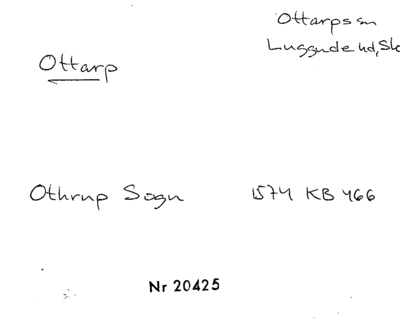 Ottarps sn
Luggude hd, Sk
Ottarp
Othrup Sogn 1574 KB 466
Nr 20425